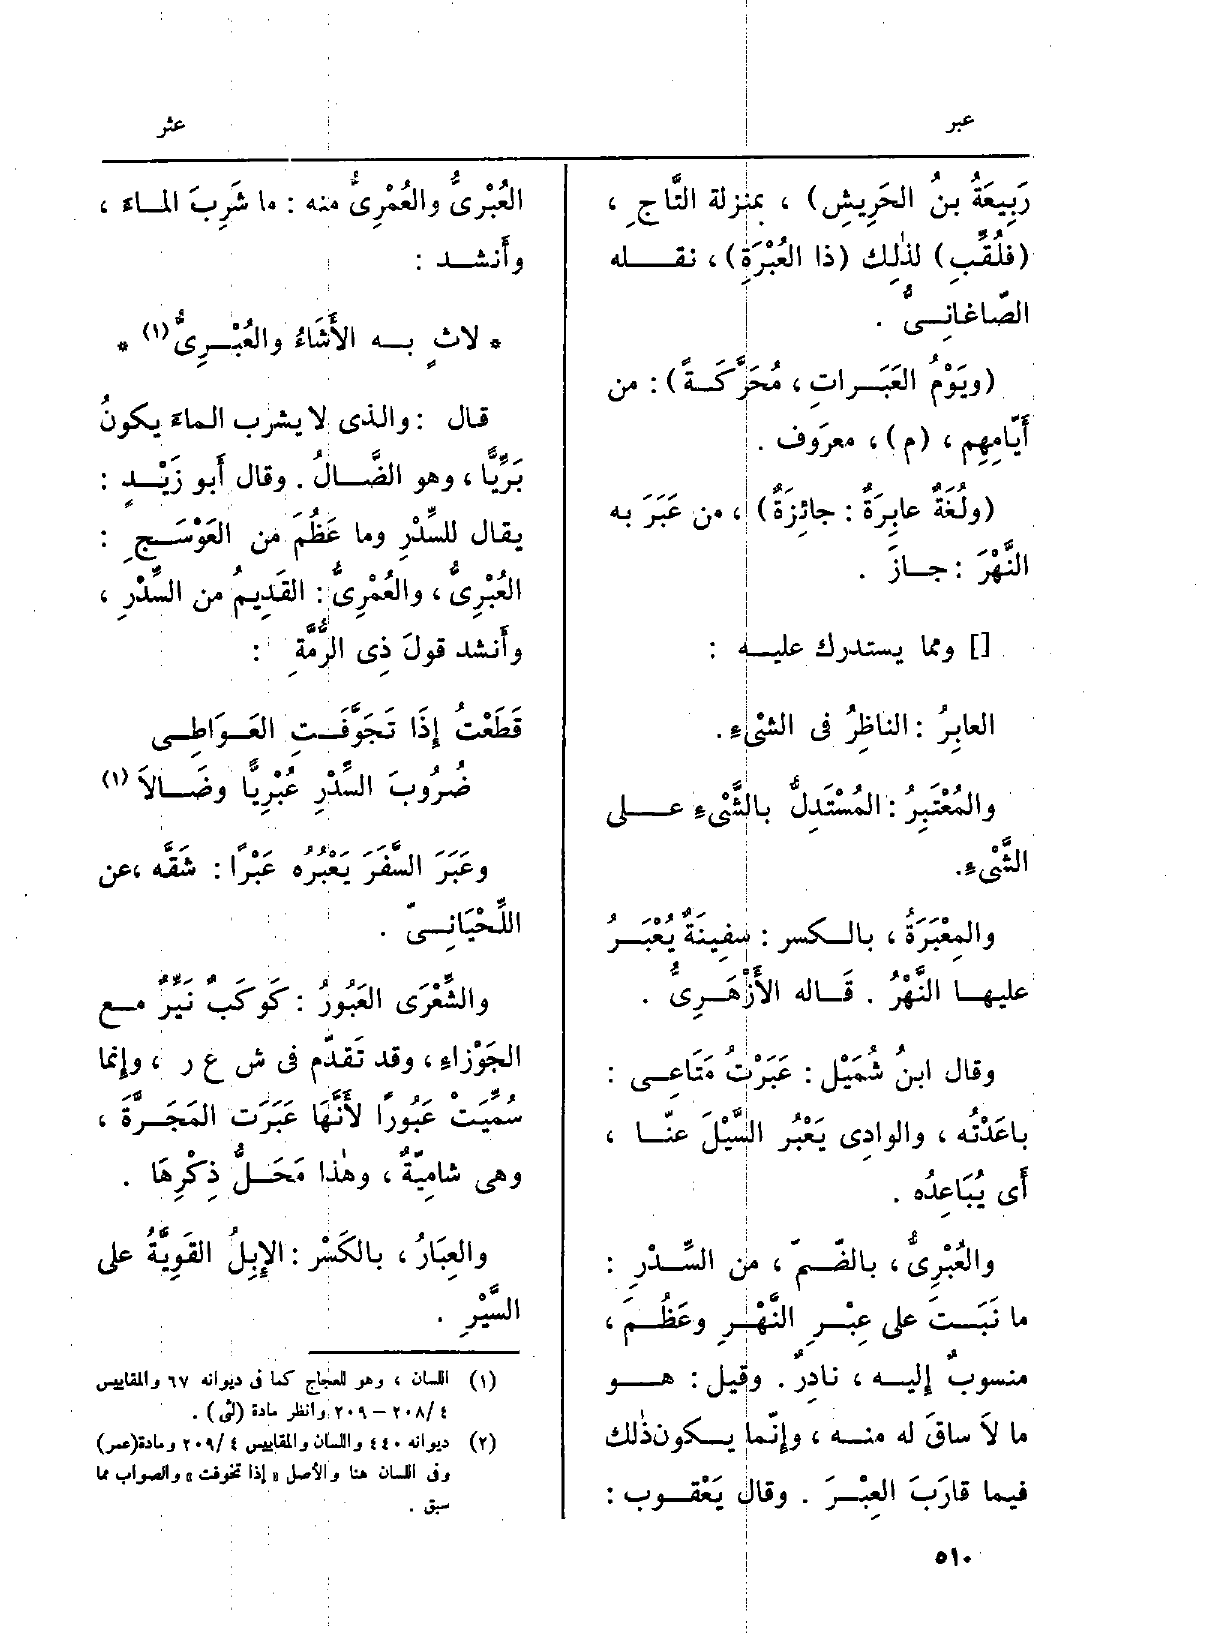 عبر
عثر
رَبِيعَةُ بنُ الحَرِيشِ) ، بمنزلة التَّاجِ ،
(فلُقِّبِ) لذٰلِك (ذا العُبْرَةِ) ، نقله
الصّاغانِىُّ .
(ويَوْمُ العَبَراتِ ، مُحَرَّكَةً) : من
أَيّامِهِم ، (م) ، معرَوف .
(ولُغَةٌ عابِرَةٌ : جائِزَةٌ) ، من عَبَرَ به
النَّهْرَ : جازَ .
[] ومما يستدرك عليه :
العابِرُ : الناظِرُ فى الشىْءِ .
والمُعْتَبِرُ : المُسْتَدِلُّ بالشَّىْءِ على
الشَّىْءِ.
والمِعْبَرَةُ ، بالكسر : سفِينَةٌ يُعْبَرُ
عليها النَّهْرُ . قَاله الأَزْهَرِىُّ .
وقال ابنُ شُمَيْل : عَبَرْتُ مَتَاعِى :
باعَدْتُه ، والوادِى يَعْبُر السَّيْلَ عنّا ،
أَى يُبَاعِدُه .
والعُبْرِىُّ ، بالضّمّ ، من السِّدْرِ :
ما نَبَتَ على عِبْرِ النَّهْرِ وعَظُمَ ،
منسوبٌ إِليه ، نادِرٌ . وقيل : هو
ما لاَ ساقَ له منه ، وإِنّما يكون ذٰلك
فيما قارَبَ العِبْرَ . وقال يَعْقوب :
العُبْرِىُّ والعُمْرِىُّ منه : ما شَرِبَ الماءَ ،
وأَنشد :
* لاثٍ به الأَشَاءُ والعُبْرِىُّ (١) *
قال : والذى لا يشرب الماءَ يكونُ
بَرِّيًّا ، وهو الضَّالُ . وقال أَبو زَيْدٍ :
يقال للسِّدْرِ وما عَظُمَ من العَوْسَجِ :
العُبْرِىُّ ، والعُمْرِىُّ : القَدِيمُ من السِّدْرِ ،
وأَنشد قولَ ذِى الرُّمَّةِ :
قَطَعْتُ إِذَا تَجَوَّفَتِ العَوَاطِى
ضُرُوبَ السِّدْرِ عُبْرِيًّا وضَالاَ (١)
وعَبَرَ السَّفَرَ يَعْبُرُه عَبْرًا : شَقَّه ،عن
اللِّحْيَانِىّ .
والشِّعْرَى العَبُورُ : كَوكَبٌ نَيِّرٌ مع
الجَوْزاءِ ، وقد تَقدّم فى ش ع ر ، وإِنما
سُمِّيَتْ عَبُورًا لأَنَّهَا عَبَرَت المَجَرَّةَ ،
وهى شامِيّةٌ ، وهٰذا مَحَلُّ ذِكْرِهَا .
والعِبَارُ ، بالكَسْر : الإِبِلُ القَوِيَّةُ على
السَّيْرِ .
(١) اللسان ، وهو للعجاج كما فى ديوانه ٦٧ والمقاييس
٤/ ٢٠٨ – ٢٠٩ وانظر مادة (لثى) .
(٢) ديوانه ٤٤٠ واللسان والمقاييس ٤ /٢٠٩ ومادة(عمر)
وفى اللسان هنا والأصل « إذا تخوفت » والصواب مما
سبق .
٥١٠